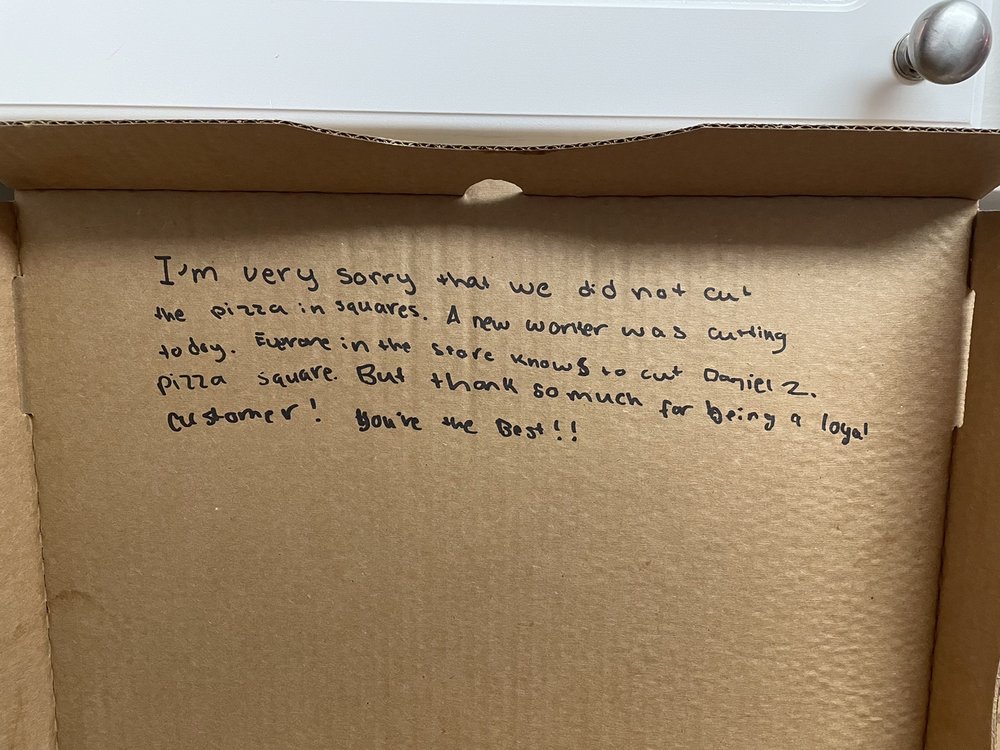 I'm very sorry that we did not cut
the pizza in squares. A new worker was cutting
today. Everone in the store knows to cut Daniel Z.
pizza square. But thank so much for being a loyal
customer! You're the Best!!